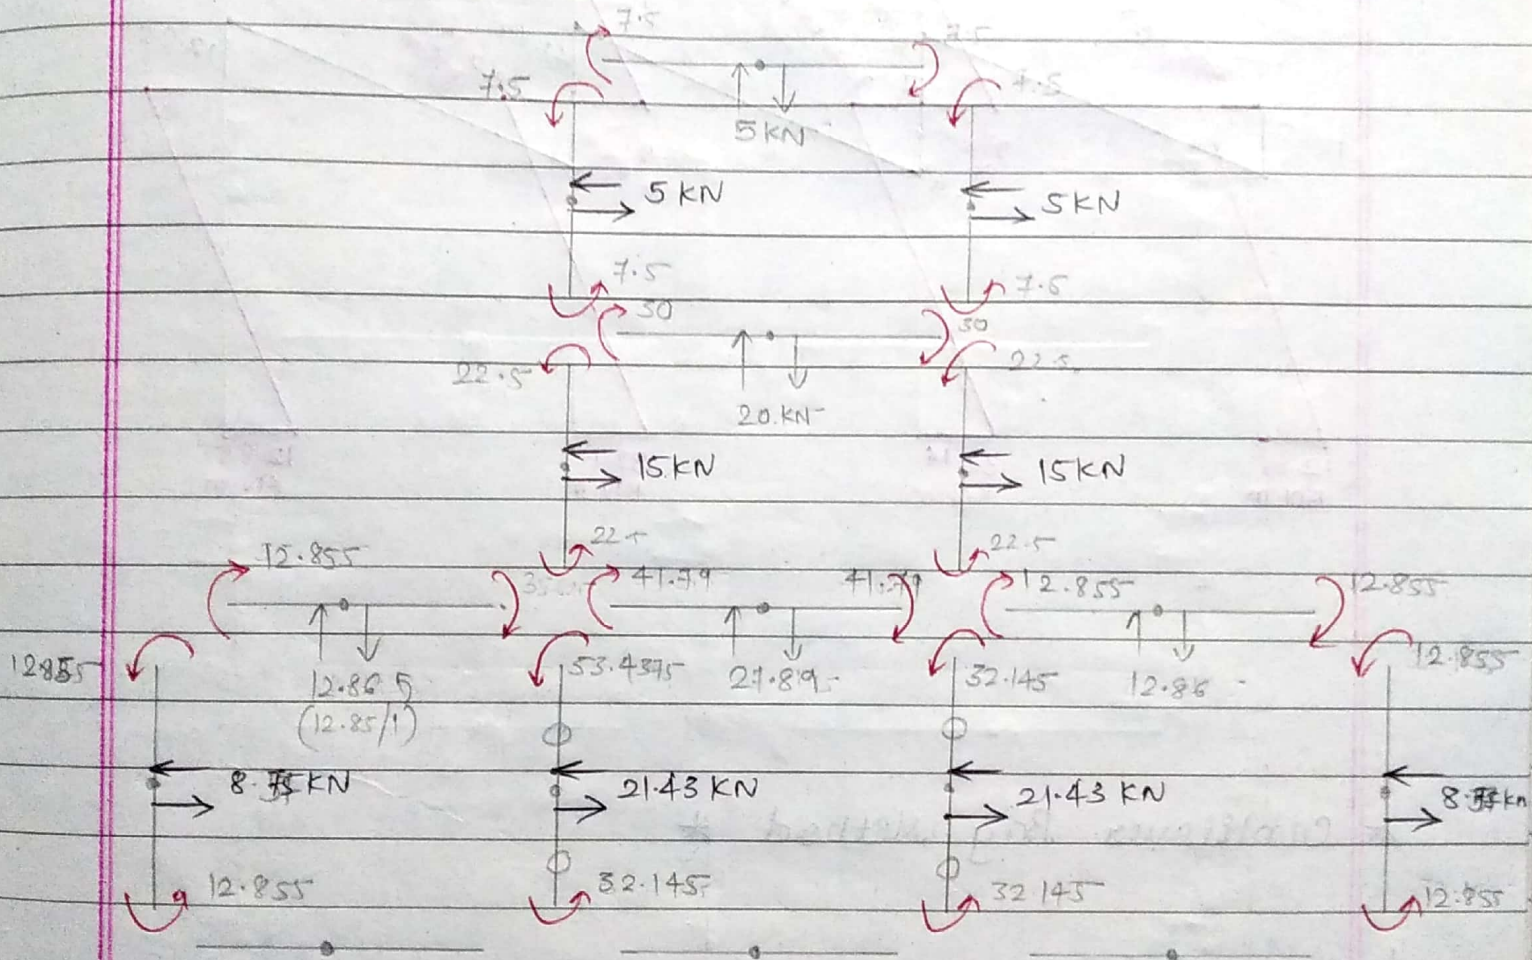 7.5 7.5
7.5 4.5
5 KN
5 KN 5 KN
7.5 7.5
30 30
22.5 22.5
20 KN
15 KN 15 KN
22.5
12.855 41.79 41.79 12.855 12.855
12.855 53.4375 32.145 12.855
12.86 27.89 12.86
(12.85/1)
KN 21.43 KN 21.43 KN
12.855 32.145 32.145 12.855